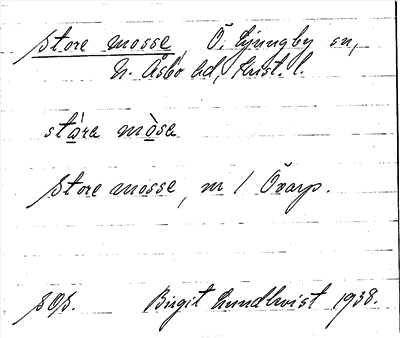 Store mosse, Ö. Ljungby sn,
N. Åsbo hd, Krist. l.
stàra mòsa
Store mosse, nr 1 Öxarp.
SOS. Birgit Lundkvist 1938.